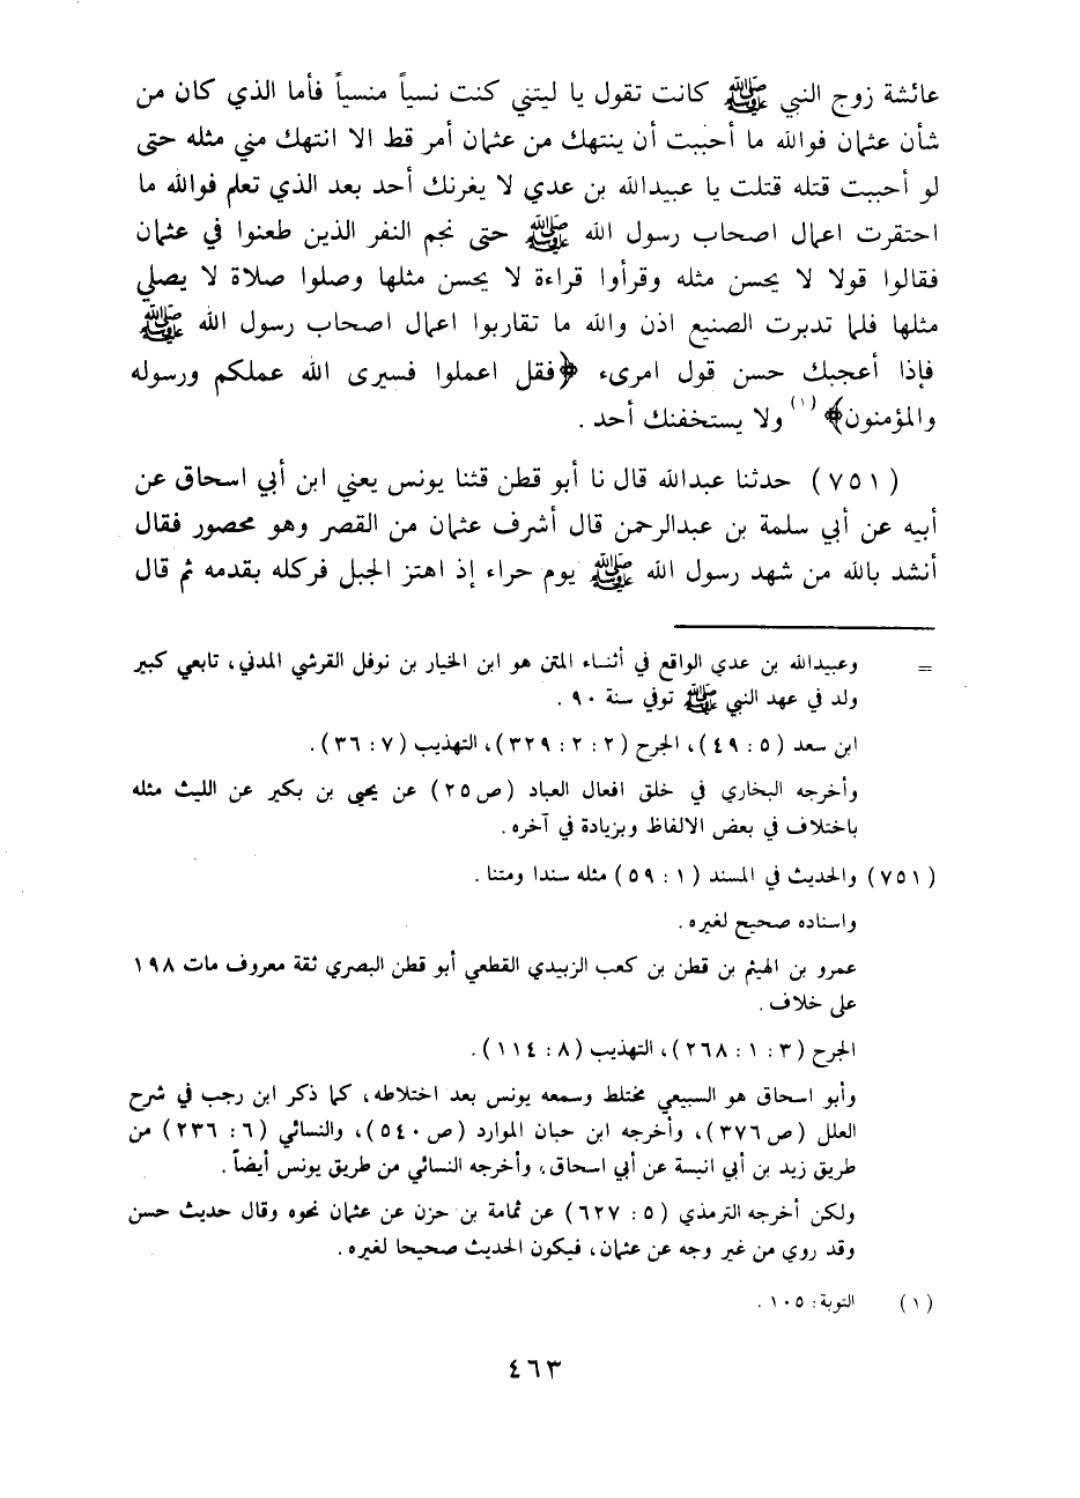 عائشة زوج النبي ﷺ كانت تقول يا ليتني كنت نسياً منسياً فأما الذي كان من
شأن عثمان فوالله ما أحببت أن ينتهك من عثمان أمر قط الا انتهك مني مثله حتى
لو أحببت قتله قتلت يا عبيدالله بن عدي لا يغرنك أحد بعد الذي تعلم فوالله ما
احتقرت اعمال اصحاب رسول الله ﷺ حتى نجم النفر الذين طعنوا في عثمان
فقالوا قولا لا يحسن مثله وقرأوا قراءة لا يحسن مثلها وصلوا صلاة لا يصلي
مثلها فلما تدبرت الصنيع اذن والله ما تقاربوا اعمال اصحاب رسول الله ﷺ
فإذا أعجبك حسن قول امرىء ﴿فقل اعملوا فسيرى الله عملكم ورسوله
والمؤمنون﴾ (١) ولا يستخفنك أحد .
(٧٥١) حدثنا عبدالله قال نا أبو قطن قثنا يونس يعني ابن أبي اسحاق عن
أبيه عن أبي سلمة بن عبدالرحمن قال أشرف عثمان من القصر وهو محصور فقال
أنشد بالله من شهد رسول الله ﷺ يوم حراء إذ اهتز الجبل فركله بقدمه ثم قال
= وعبيدالله بن عدي الواقع في أثناء المتن هو ابن الخيار بن نوفل القرشي المدني، تابعي كبير
ولد في عهد النبي ﷺ توفي سنة ٩٠ .
ابن سعد (٥ : ٤٩)، الجرح (٢ : ٢ : ٣٢٩)، التهذيب (٧ : ٣٦).
وأخرجه البخاري في خلق افعال العباد (ص٢٥) عن يحيى بن بكير عن الليث مثله
باختلاف في بعض الالفاظ وبزيادة في آخره .
(٧٥١) والحديث في المسند (١ : ٥٩) مثله سندا ومتنا .
واسناده صحيح لغيره .
عمرو بن الهيثم بن قطن بن كعب الزبيدي القطعي أبو قطن البصري ثقة معروف مات ١٩٨
على خلاف .
الجرح (٣ : ١ : ٢٦٨)، التهذيب (٨ : ١١٤).
وأبو اسحاق هو السبيعي مختلط وسمعه يونس بعد اختلاطه، كما ذكر ابن رجب في شرح
العلل (ص٣٧٦)، وأخرجه ابن حبان الموارد (ص٥٤٠)، والنسائي (٦ : ٢٣٦) من
طريق زيد بن أبي انيسة عن أبي اسحاق، وأخرجه النسائي من طريق يونس أيضاً .
ولكن أخرجه الترمذي (٥ : ٦٢٧) عن ثمامة بن حزن عن عثمان نحوه وقال حديث حسن
وقد روي من غير وجه عن عثمان، فيكون الحديث صحيحا لغيره .
(١) التوبة : ١٠٥ .
٤٦٣